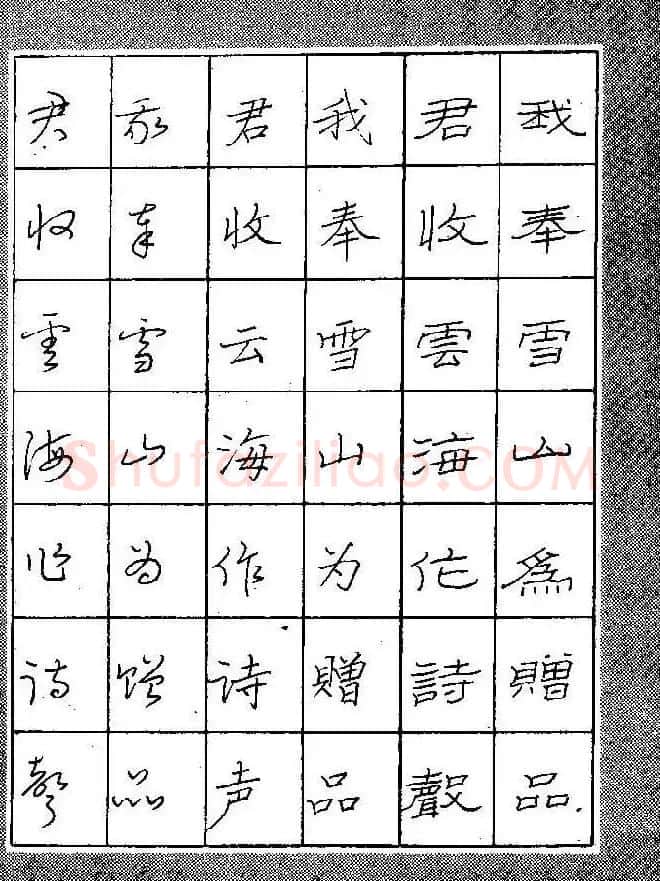 我奉雪山為贈品
君收雲海作詩聲
我奉雪山为贈品
君收云海作诗声
我奉雪山为赠品
君收雲海作诗聲
Shufaziliao.COM